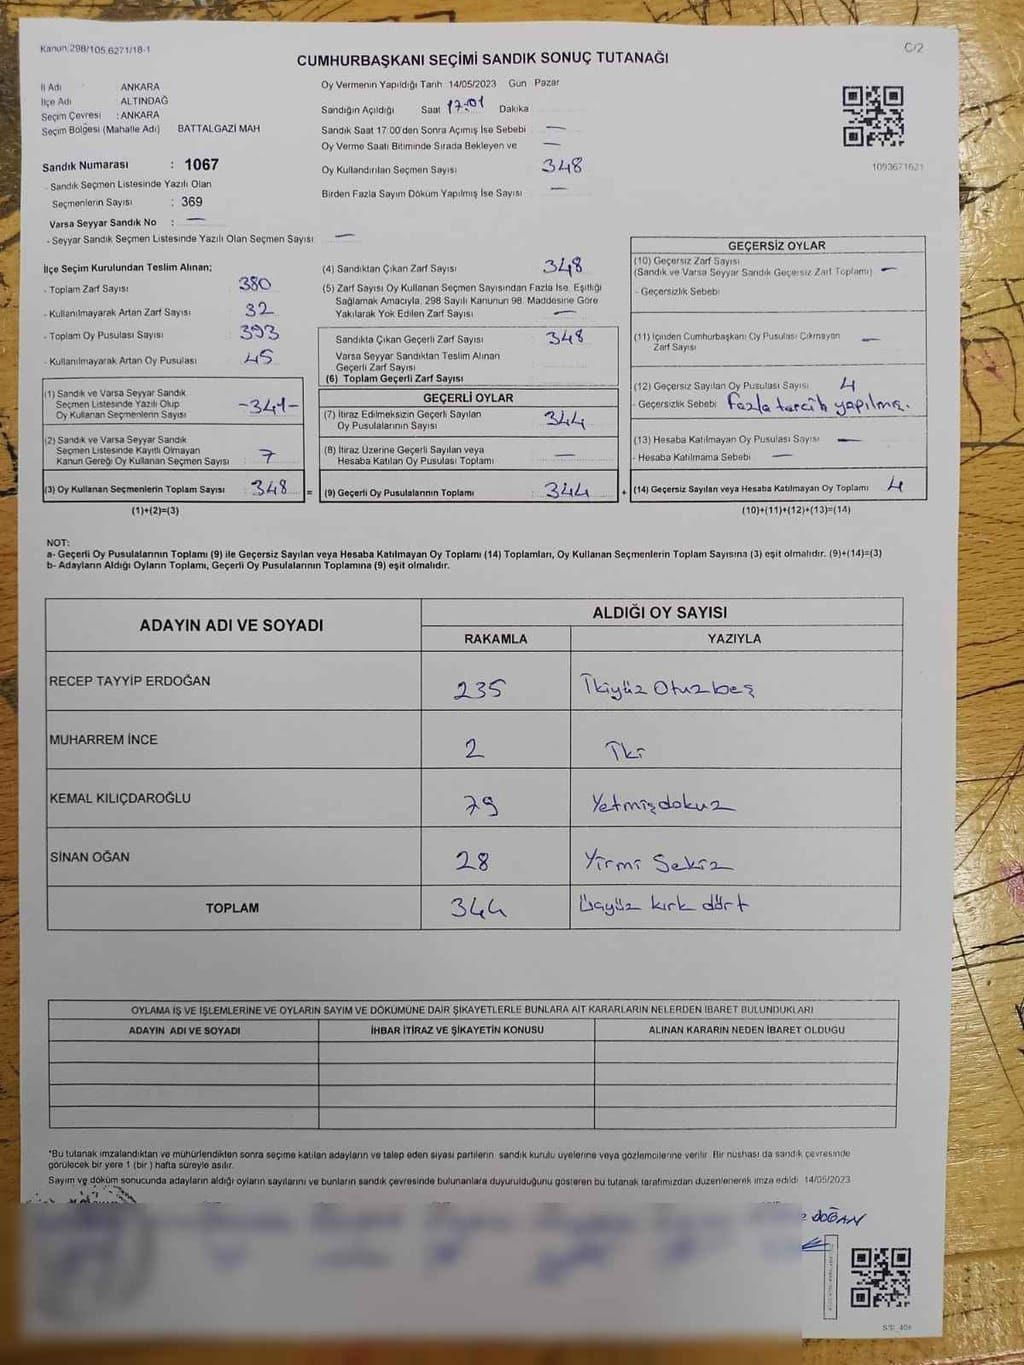 Kanun 298/105,6271/18-1
C/2
CUMHURBAŞKANI SEÇİMİ SANDIK SONUÇ TUTANAĞI
İl Adı ANKARA
İlçe Adı ALTINDAĞ
Seçim Çevresi : ANKARA
Seçim Bölgesi (Mahalle Adı) BATTALGAZİ MAH
Sandık Numarası : 1067
- Sandık Seçmen Listesinde Yazılı Olan
Seçmenlerin Sayısı : 369
Varsa Seyyar Sandık No : —
- Seyyar Sandık Seçmen Listesinde Yazılı Olan Seçmen Sayısı —
Oy Vermenin Yapıldığı Tarih 14/05/2023 Gün Pazar
Sandığın Açıldığı Saat 17:01 Dakika
Sandık Saat 17 00'den Sonra Açımış İse Sebebi —
Oy Verme Saati Bitiminde Sırada Bekleyen ve —
Oy Kullandırılan Seçmen Sayısı 348
Birden Fazla Sayım Döküm Yapılmış İse Sayısı —
1093671621
İlçe Seçim Kurulundan Teslim Alınan;
- Toplam Zarf Sayısı 380
- Kullanılmayarak Artan Zarf Sayısı 32
- Toplam Oy Pusulası Sayısı 393
- Kullanılmayarak Artan Oy Pusulası 45
(1) Sandık ve Varsa Seyyar Sandık
Seçmen Listesinde Yazılı Olup
Oy Kullanan Seçmenlerin Sayısı -341-
(2) Sandık ve Varsa Seyyar Sandık
Seçmen Listesinde Kayıtlı Olmayan
Kanun Gereği Oy Kullanan Seçmen Sayısı 7
(3) Oy Kullanan Seçmenlerin Toplam Sayısı 348 =
(1)+(2)=(3)
(4) Sandıktan Çıkan Zarf Sayısı 348
(5) Zarf Sayısı Oy Kullanan Seçmen Sayısından Fazla İse, Eşitliği
Sağlamak Amacıyla, 298 Sayılı Kanunun 98. Maddesine Göre
Yakılarak Yok Edilen Zarf Sayısı —
Sandıkta Çıkan Geçerli Zarf Sayısı 348
Varsa Seyyar Sandıktan Teslim Alınan
Geçerli Zarf Sayısı
(6) Toplam Geçerli Zarf Sayısı
GEÇERLİ OYLAR
(7) İtiraz Edilmeksizin Geçerli Sayılan
Oy Pusulalarının Sayısı 344
(8) İtiraz Üzerine Geçerli Sayılan veya
Hesaba Katılan Oy Pusulası Toplamı —
(9) Geçerli Oy Pusulalarının Toplamı : 344 +
GEÇERSİZ OYLAR
(10) Geçersiz Zarf Sayısı
(Sandık ve Varsa Seyyar Sandık Geçersiz Zarf Toplamı) —
- Geçersizlik Sebebi
(11) İçinden Cumhurbaşkanı Oy Pusulası Çıkmayan
Zarf Sayısı —
(12) Geçersiz Sayılan Oy Pusulası Sayısı 4
- Geçersizlik Sebebi Fazla tercih yapılmış.
(13) Hesaba Katılmayan Oy Pusulası Sayısı —
- Hesaba Katılmama Sebebi —
(14) Geçersiz Sayılan veya Hesaba Katılmayan Oy Toplamı 4
(10)+(11)+(12)+(13)=(14)
NOT:
a- Geçerli Oy Pusulalarının Toplamı (9) ile Geçersiz Sayılan veya Hesaba Katılmayan Oy Toplamı (14) Toplamları, Oy Kullanan Seçmenlerin Toplam Sayısına (3) eşit olmalıdır. (9)+(14)=(3)
b- Adayların Aldığı Oyların Toplamı, Geçerli Oy Pusulalarının Toplamına (9) eşit olmalıdır.
ADAYIN ADI VE SOYADI ALDIĞI OY SAYISI
RAKAMLA YAZIYLA
RECEP TAYYİP ERDOĞAN 235 İkiyüz Otuzbeş
MUHARREM İNCE 2 İki
KEMAL KILIÇDAROĞLU 79 Yetmişdokuz
SİNAN OĞAN 28 Yirmi Sekiz
TOPLAM 344 Üçyüz kırk dört
OYLAMA İŞ VE İŞLEMLERİNE VE OYLARIN SAYIM VE DÖKÜMÜNE DAİR ŞİKAYETLERLE BUNLARA AİT KARARLARIN NELERDEN İBARET BULUNDUKLARI
ADAYIN ADI VE SOYADI İHBAR İTİRAZ VE ŞİKAYETİN KONUSU ALINAN KARARIN NEDEN İBARET OLDUĞU
*Bu tutanak imzalandıktan ve mühürlendikten sonra seçime katılan adayların ve talep eden siyasi partilerin sandık kurulu üyelerine veya gözlemcilerine verilir. Bir nüshası da sandık çevresinde
görülecek bir yere 1 (bir) hafta süreyle asılır.
Sayım ve döküm sonucunda adayların aldığı oyların sayılarını ve bunların sandık çevresinde bulunanlara duyurulduğunu gösteren bu tutanak tarafımızdan düzenlenerek imza edildi 14/05/2023
DOĞAN